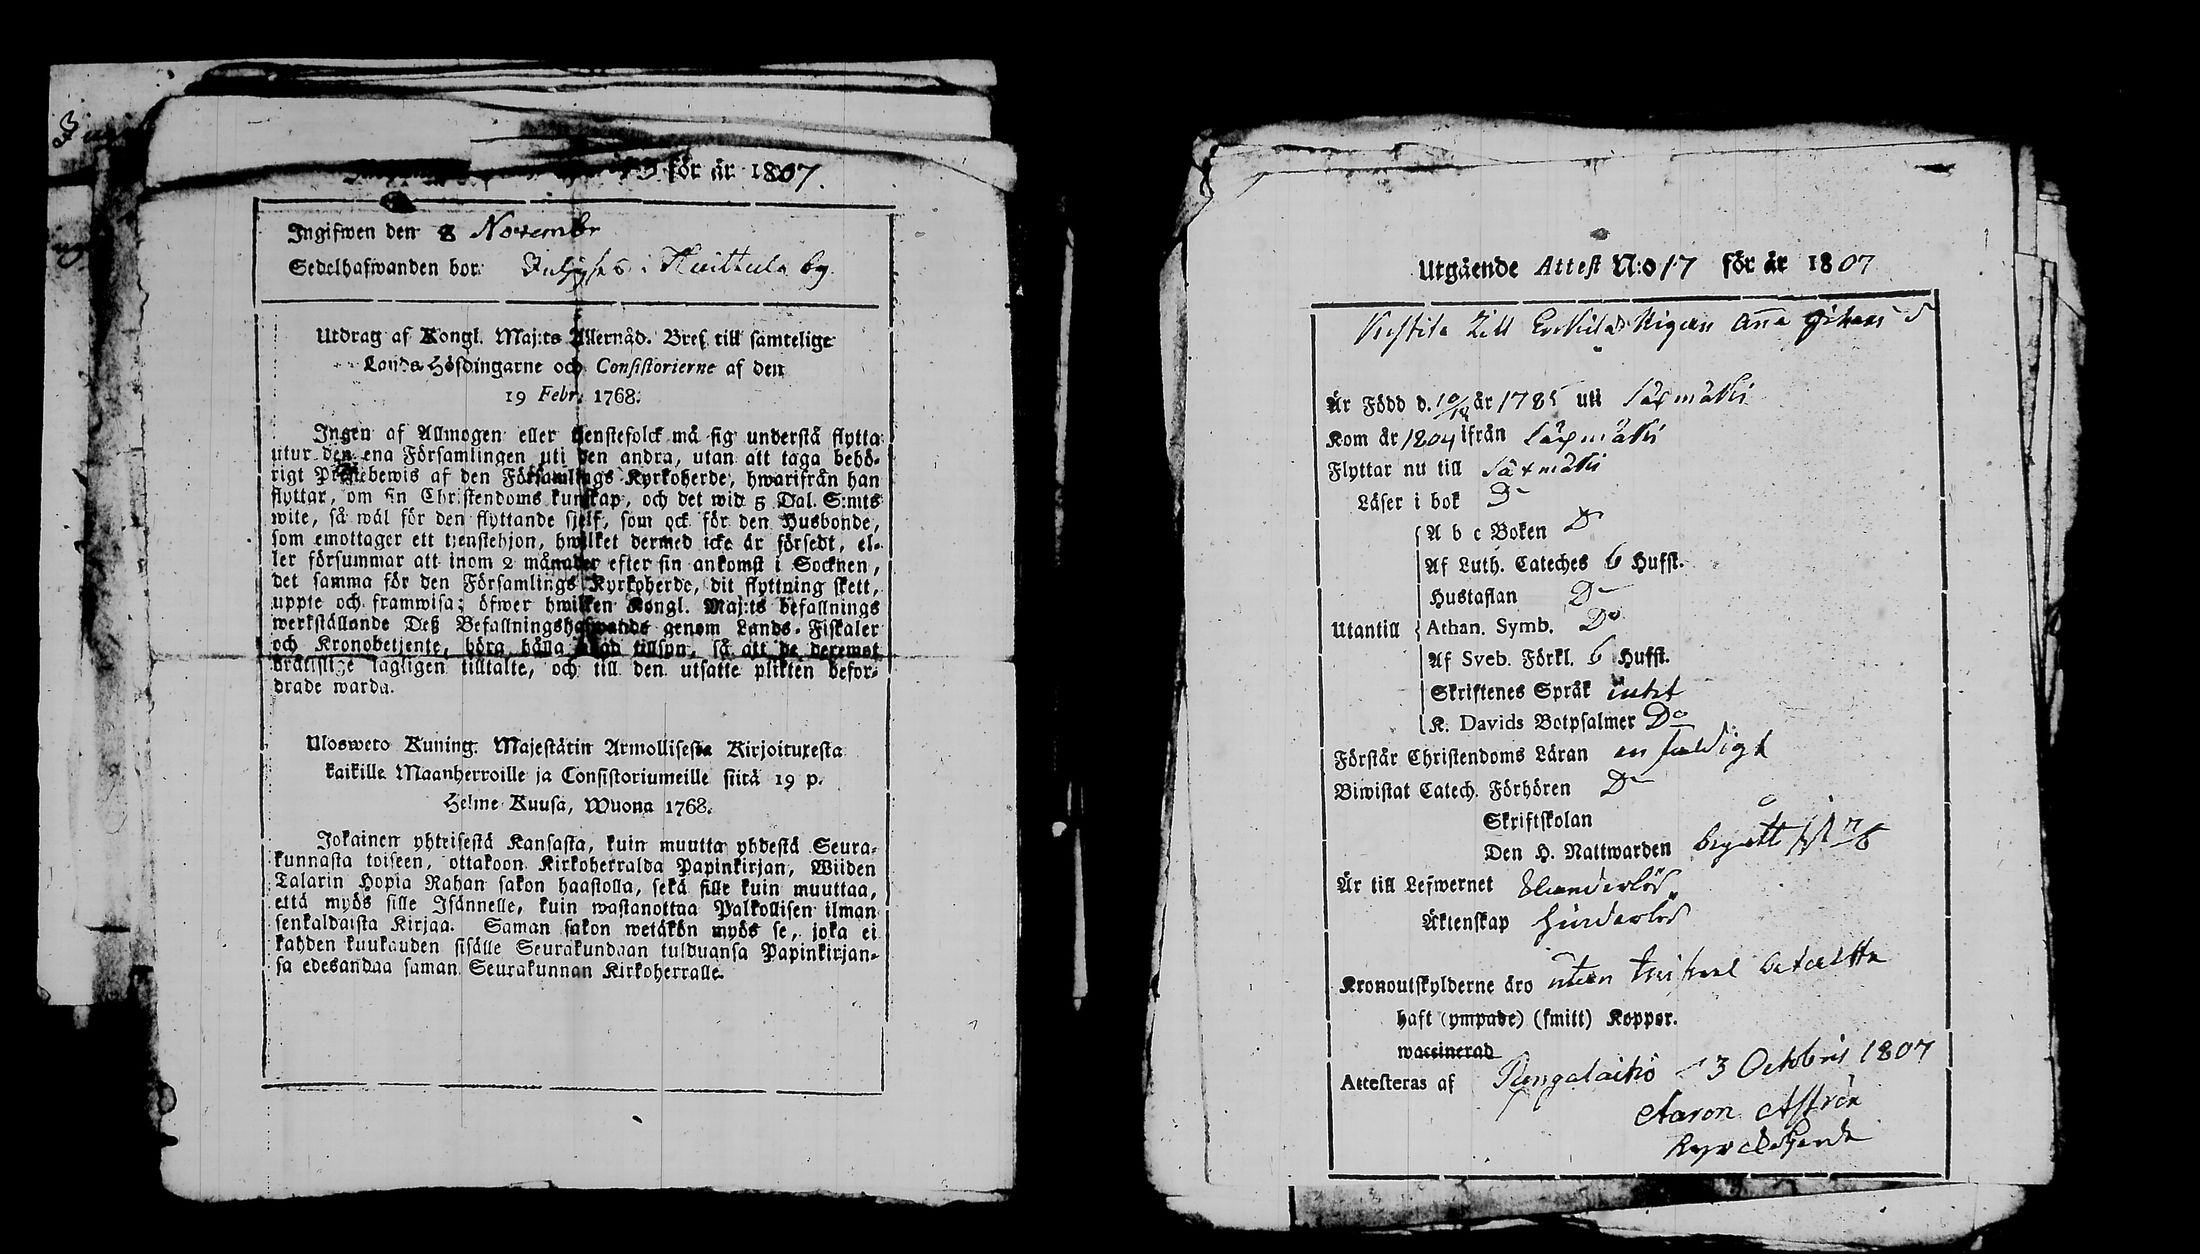 för år 1807.
Ingifwen den 8 Novembr
Sedelhafwanden bor i Huittula by.
Utdrag af Kongl. Maj:ts Allernåd. Bref till samtelige
Lands-Höfdingarne och Consistorierne af den
19 Febr. 1768.
Ingen af Allmogen eller tienstefolck må sig understå flytta
utur den ena Församlingen uti den andra, utan att taga behö-
rigt Prästebewis af den Församlings Kyrkoherde, hwarifrån han
flyttar, om sin Christendoms kunskap, och det wid 5 Dal. S:mts
wite, så wäl för den flyttande sjelf, som ock för den Husbonde,
som emottager ett tjenstehjon, hwilket dermed icke är försedt, el-
ler försummar att inom 2 månader efter sin ankomst i Socknen,
det samma för den Församlings Kyrkoherde, dit flyttning skett,
uppte och framwisa; öfwer hwilken Kongl. Maj:ts befallnings
werkställande Deß Befallningshafwande genom Lands-Fiskaler
och Kronobetjente, böra hålla tillsyn, så att de deremot
bråtslige lagligen tilltalte, och till den utsatte plikten befor-
drade warda.
Ulosweto Kuning. Majestätin Armollisesta Kirjoituxesta
kaikille Maanherroille ja Consistoriumeille siitä 19 p.
Helme Kuusa, Wuona 1768.
Jokainen yhteisestä Kansasta, kuin muutta yhdestä Seura-
kunnasta toiseen, ottakoon Kirkoherralda Papinkirjan, Wiiden
Talarin Hopia Rahan sakon haastolla, sekä sille kuin muuttaa,
että myös sille Isännelle, kuin wastanottaa Palkollisen ilman
senkaldaista Kirjaa. Saman sakon wetäkön myös se, joka ei
kahden kuukauden sisälle Seurakundaan tulduansa Papinkirjan-
sa edesandaa saman Seurakunnan Kirkoherralle.
Utgående Attest N:o 17 för år 1807
Pigan Anna
Är Född d. 10/12 år 1785 uti Säxmäki
Kom år 1804 ifrån Säxmäki
Flyttar nu till Säxmäki
Läser i bok Do
A b c Boken Do
Af Luth. Cateches 6 Hufst.
Hustaflan Do
Utantill Athan. Symb. Do
Af Sveb. Förkl. 6 Hufst.
Skriftenes Språk intet
K. Davids Botpsalmer Do
Förstår Christendoms Läran enfaldigt
Biwistat Catech. Förhören Do
Skriftskolan
Den H. Nattwarden begått sist
Är till Lefwernet
Äktenskap hinderlös
Kronoutskylderne äro utan betalta
haft (ympade) (smitt) Koppor.
waccinerad
Attesteras af Pungalaitio 3 Octobris 1807
Aaron Aström
Kyrckoherde